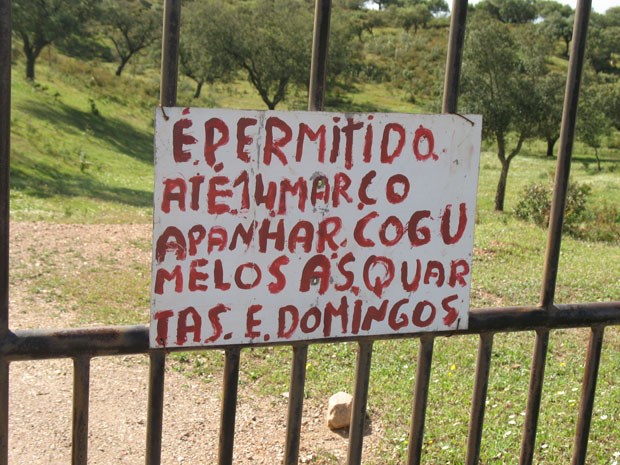 É.PERMITIDO.
ATÉ14MARÇO
APANHAR.COGU
MELOS ÁS.QUAR
TAS.E.DOMINGOS.